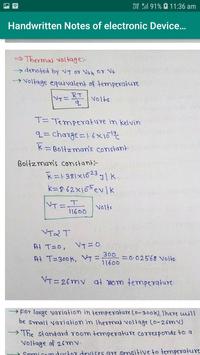 91% 11:36 am
Handwritten Notes of electronic Device...
⇒ Thermal voltage:-
→ denoted by VT or Vth or Vt
→ Voltage equivalent of temperature
VT = k̄T/q Volts
T = Temperature in kelvin
q = charge = 1.6×10⁻¹⁹C
k̄ = Boltzman's constant
Boltzman's constant:-
k̄ = 1.381×10⁻²³ J/K
k = 8.62×10⁻⁵ eV/K
VT = T/11600 Volts
VT ∝ T
At T=0, VT=0
At T=300K, VT = 300/11600 = 0.02568 Volts
VT = 26mV at room temperature
→ For large variation in temperature (0-300K) There will
be small variation in Thermal voltage (0-26mV)
→ The standard room temperature corresponds to a
Voltage of 26mV.
→ Semiconductor devices are sensitive to temperature